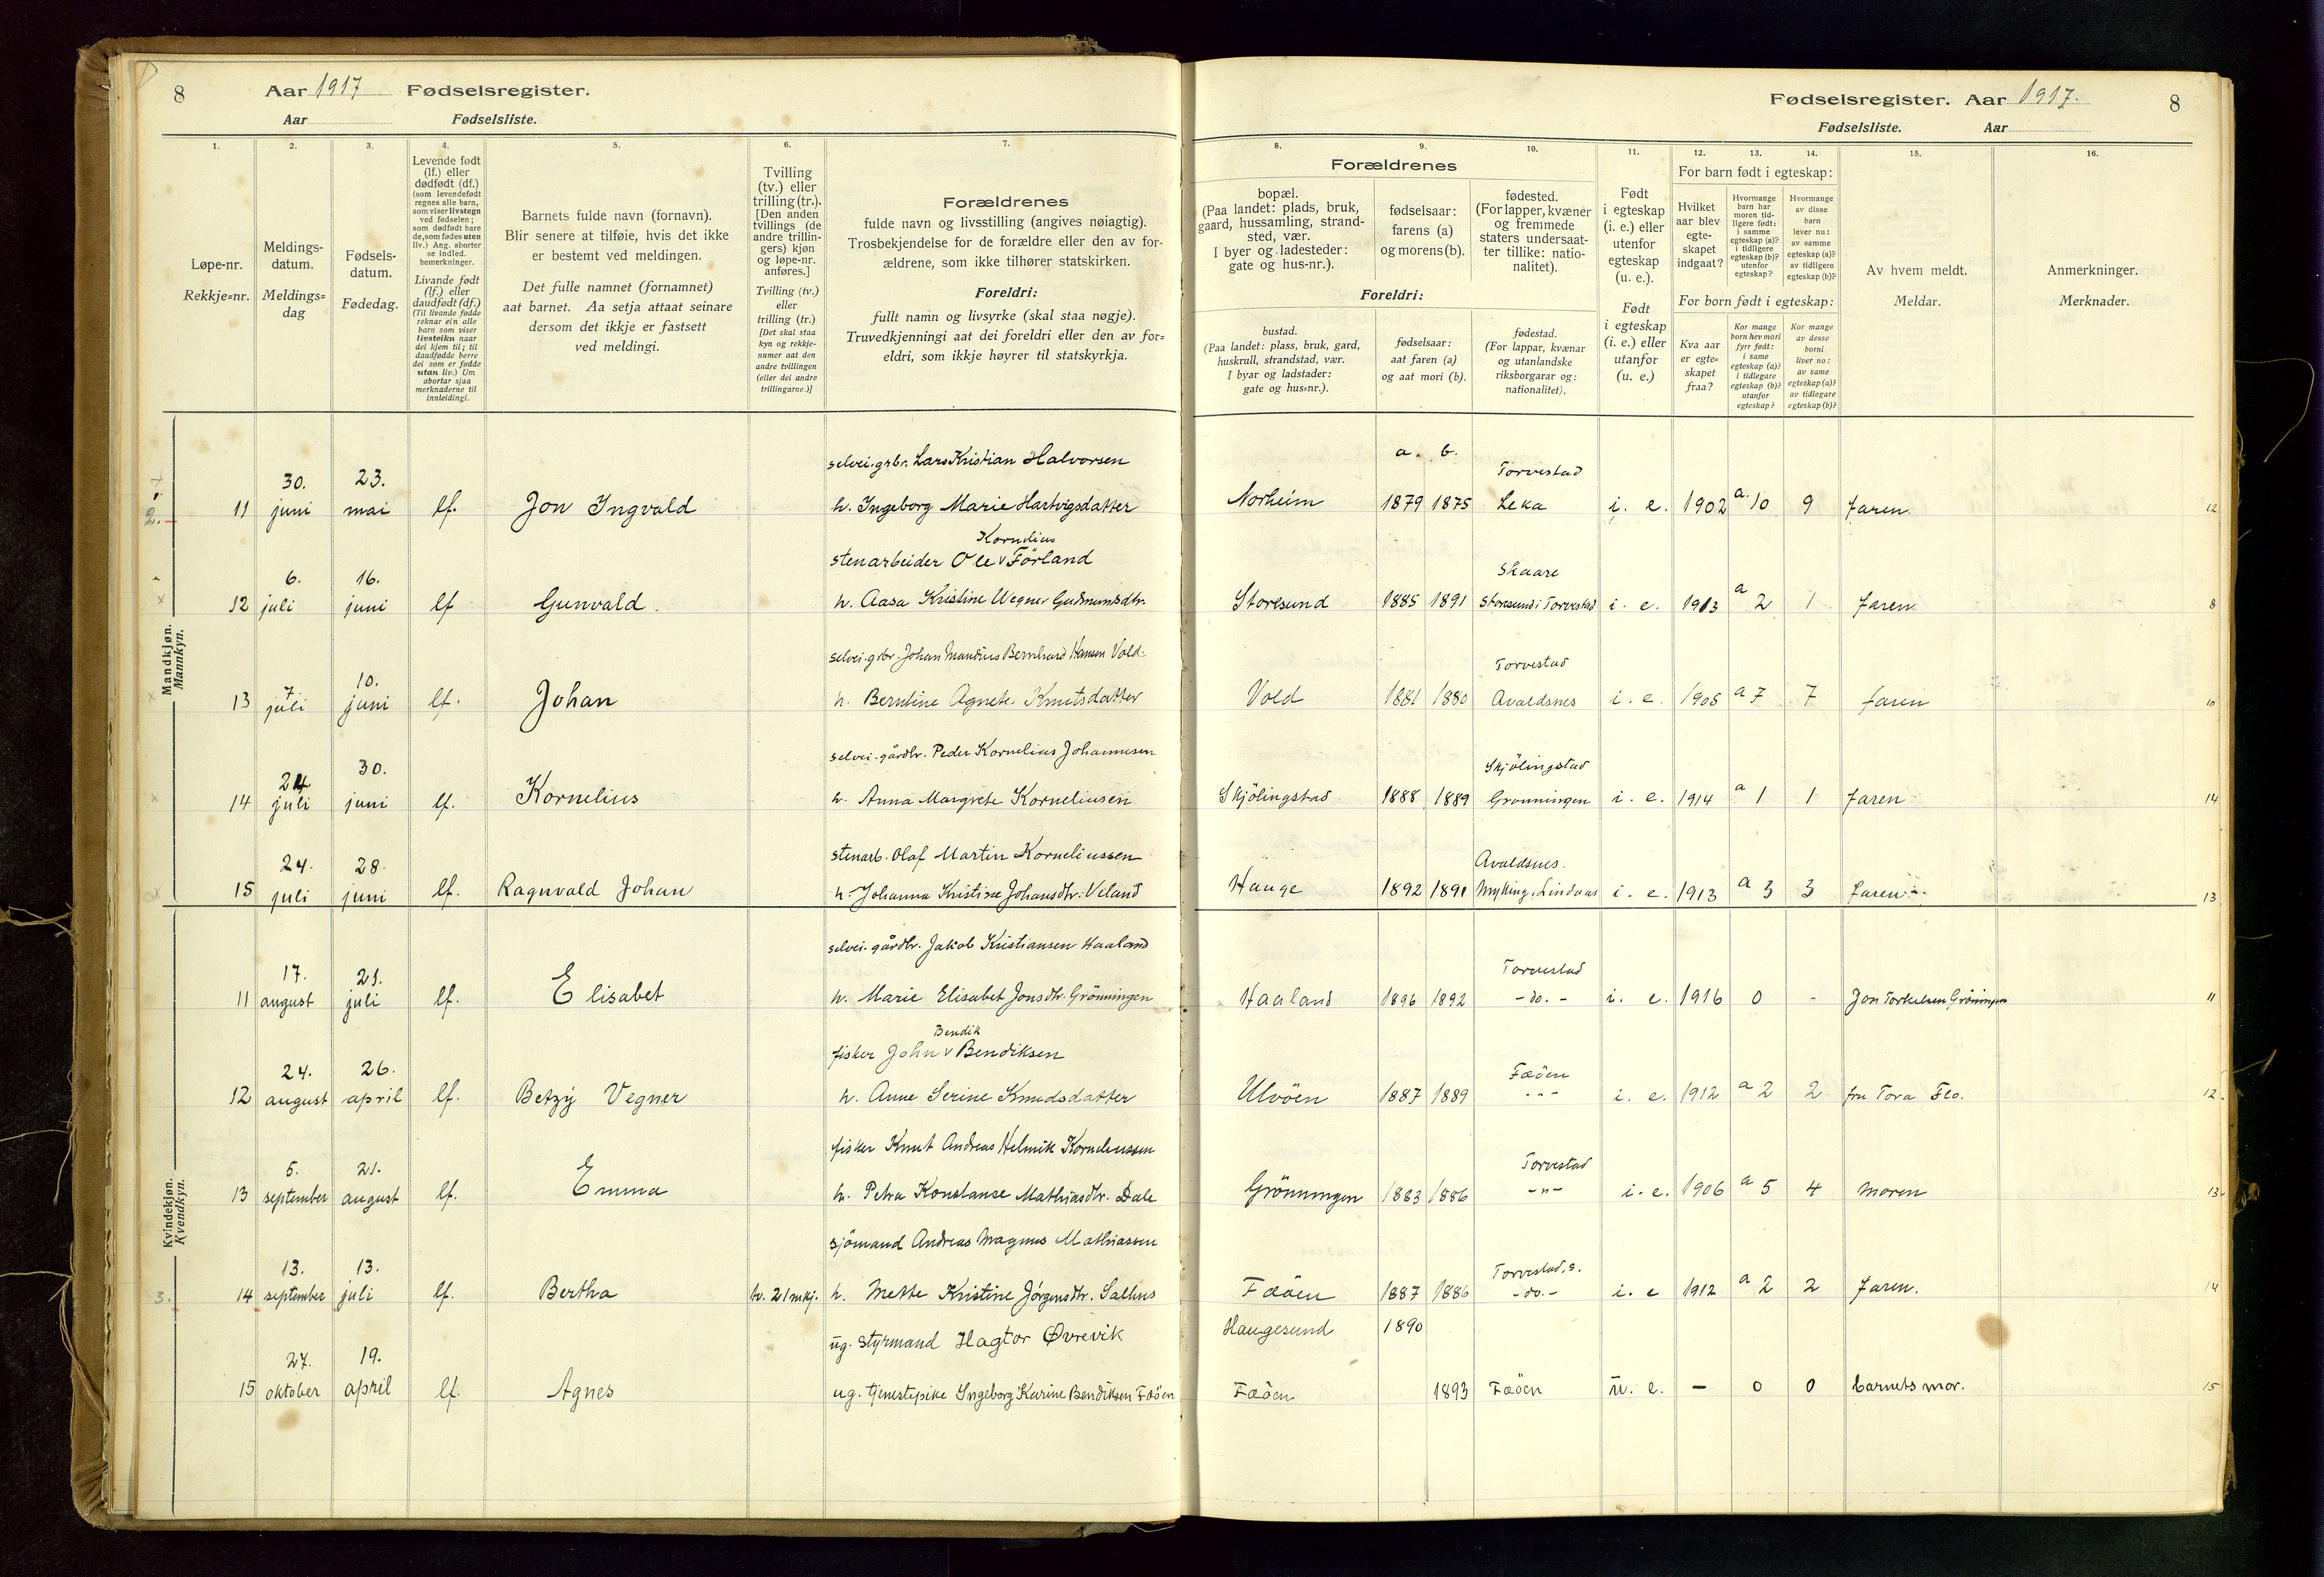 8 Aar 1917 Fødselsregister.
Aar Fødselsliste.
Fødselsregister. Aar 1917. 8
Fødselsliste. Aar
1. 2. 3. 4. 5. 6. 7. 8. 9. 10. 11. 12. 13. 14. 15. 16.
Løpe-nr.
Rekkje=nr.
Meldings-
datum.
Meldings=
dag
Fødsels-
datum.
Fødedag.
Levende født
(lf.) eller
dødfødt (df.)
(som levendefødt
regnes alle barn,
som viser livstegn
ved fødselen;
som dødfødt bare
de, som fødes uten
liv.) Ang. aborter
se indled.
bemerkninger.
Livande født
(lf.) eller
daudfødt (df.)
(Til livande fødde
reknar ein alle
barn som viser
livsteikn naar
dei kjem til; til
daudfødde berre
dei som er fødde
utan liv.) Um
abortar sjaa
merknaderne til
innleidingi.
Barnets fulde navn (fornavn).
Blir senere at tilføie, hvis det ikke
er bestemt ved meldingen.
Det fulle namnet (fornamnet)
aat barnet. Aa setja attaat seinare
dersom det ikkje er fastsett
ved meldingi.
Tvilling
(tv.) eller
trilling (tr.).
[Den anden
tvillings (de
andre trillin-
gers) kjøn
og løpe-nr.
anføres.]
Tvilling (tv.)
eller
trilling (tr.)
[Det skal staa
kyn og rekkje-
numer aat den
andre tvillingen
(eller dei andre
trillingarne.)]
Forældrenes
fulde navn og livsstilling (angives nøiagtig).
Trosbekjendelse for de forældre eller den av for-
ældrene, som ikke tilhører statskirken.
Foreldri:
fullt namn og livsyrke (skal staa nøgje).
Truvedkjenningi aat dei foreldri eller den av for=
eldri, som ikkje høyrer til statskyrkja.
Forældrenes
bopæl.
(Paa landet: plads, bruk,
gaard, hussamling, strand-
sted, vær.
I byer og ladesteder:
gate og hus-nr.).
fødselsaar:
farens (a)
og morens (b).
fødested.
(For lapper, kvæner
og fremmede
staters undersaat-
ter tillike: natio-
nalitet).
Foreldri:
bustad.
(Paa landet: plass, bruk, gard,
huskrull, strandstad, vær.
I byar og ladstader:
gate og hus=nr.).
fødselsaar:
aat faren (a)
og aat mori (b).
fødestad.
(For lappar, kvænar
og utanlandske
riksborgarar og:
nationalitet).
Født
i egteskap
(i. e.) eller
utenfor
egteskap
(u. e.).
Født
i egteskap
(i. e.) eller
utanfor
(u. e.)
For barn født i egteskap:
Hvilket
aar blev
egte-
skapet
indgaat?
Hvormange
barn har
moren tid-
ligere født:
i samme
egteskap (a)?
i tidligere
egteskap (b)?
utenfor
egteskap?
Hvormange
av disse
barn
lever nu:
av samme
egteskap (a)?
av tidligere
egteskap (b)?
For born født i egteskap:
Kva aar
er egte=
skapet
fraa?
Kor mange
born hev mori
fyrr født:
i same
egteskap (a)?
i tidlegare
egteskap (b)?
utanfor
egteskap?
Kor mange
av desse
borni
liver no:
av same
egteskap (a)?
av tidlegare
egteskap (b)?
Av hvem meldt.
Meldar.
Anmerkninger.
Merknader.
Mandkjøn.
Mannkyn.
selvei.grbr. Lars Kristian Halvorsen a. b. Torvestad
11 30. juni 23. mai lf. Jon Ingvald h. Ingeborg Marie Hartvigsdatter Norheim 1879 1875 Leka i. e. 1902 a. 10 9 faren. 12
Kornelius
stenarbeider Ole v Förland Skaare
12 6. juli 16. juni lf Gunvald. h. Aasa Kristine Wegner Gudmundsdtr. Storesund 1885 1891 Storesund i Torvestad i. e. 1913 a 2 1 faren 8
selvei.grbr. Johan Mandius Bernhard Hansen Vold. Torvestad
13 7 juli 10. juni lf. Johan h. Berntine Agnete Knutsdatter Vold 1881 1880 Avaldsnes i. e. 1905 a 7 7 faren 10
selvei.gårdbr. Peder Kornelius Johannesen Skjölingstad
14 24 juli 30. juni lf. Kornelius h. Anna Margrete Korneliusen Skjölingstad 1888 1889 Grønningen i. e. 1914 a 1 1 faren 14
stenarb. Olaf Martin Korneliussen Avaldsnes.
15 24. juli 28. juni lf. Ragnvald Johan h. Johanna Kristine Johansdtr. Veland Hauge 1892 1891 Mykling, Lindaas i. e. 1913 a 3 3 faren 13
Kvindekjøn.
Kvendkyn.
selvei.gårdbr. Jakob Kristiansen Haaland Torvestad
11 17. august 21. juli lf. Elisabet h. Marie Elisabet Jonsdtr. Grönningen Haaland 1896 1892 - do. - i. e. 1916 0 - Jon Torkelsen Grönningen 11
Bendik
fisker John v Bendiksen Fæöen
12 24. august 26. april lf. Betzy Vegner h. Anne Serine Knudsdatter Ulvöen 1887 1889 - " - i. e. 1912 a 2 2 fru Tora Flo. 12.
fisker Knut Andreas Helmik Korneliussen Torvestad
13 5. september 21. august lf. Emma h. Petra Konstanse Mathiasdtr. Dale Grönningen 1883 1886 - " - i. e. 1906 a 5 4 moren 13
sjömand Andreas Magnus Mathiassen Torvestad, s.
3. 14 13. september 13. juli lf. Bertha tv. 21 mkj. h. Mette Kristine Jörgensdtr. Salhus Fæöen 1887 1886 - do. - i. e 1912 a 2 2 faren. 14
ug. styrmand Hagtor Øvrevik Haugesund 1890
15 27. oktober 19. april lf. Agnes ug. tjenestepike Ingeborg Karine Bendiksen Fæöen Fæöen 1893 Fæöen u. e. - 0 0 barnets mor. 15